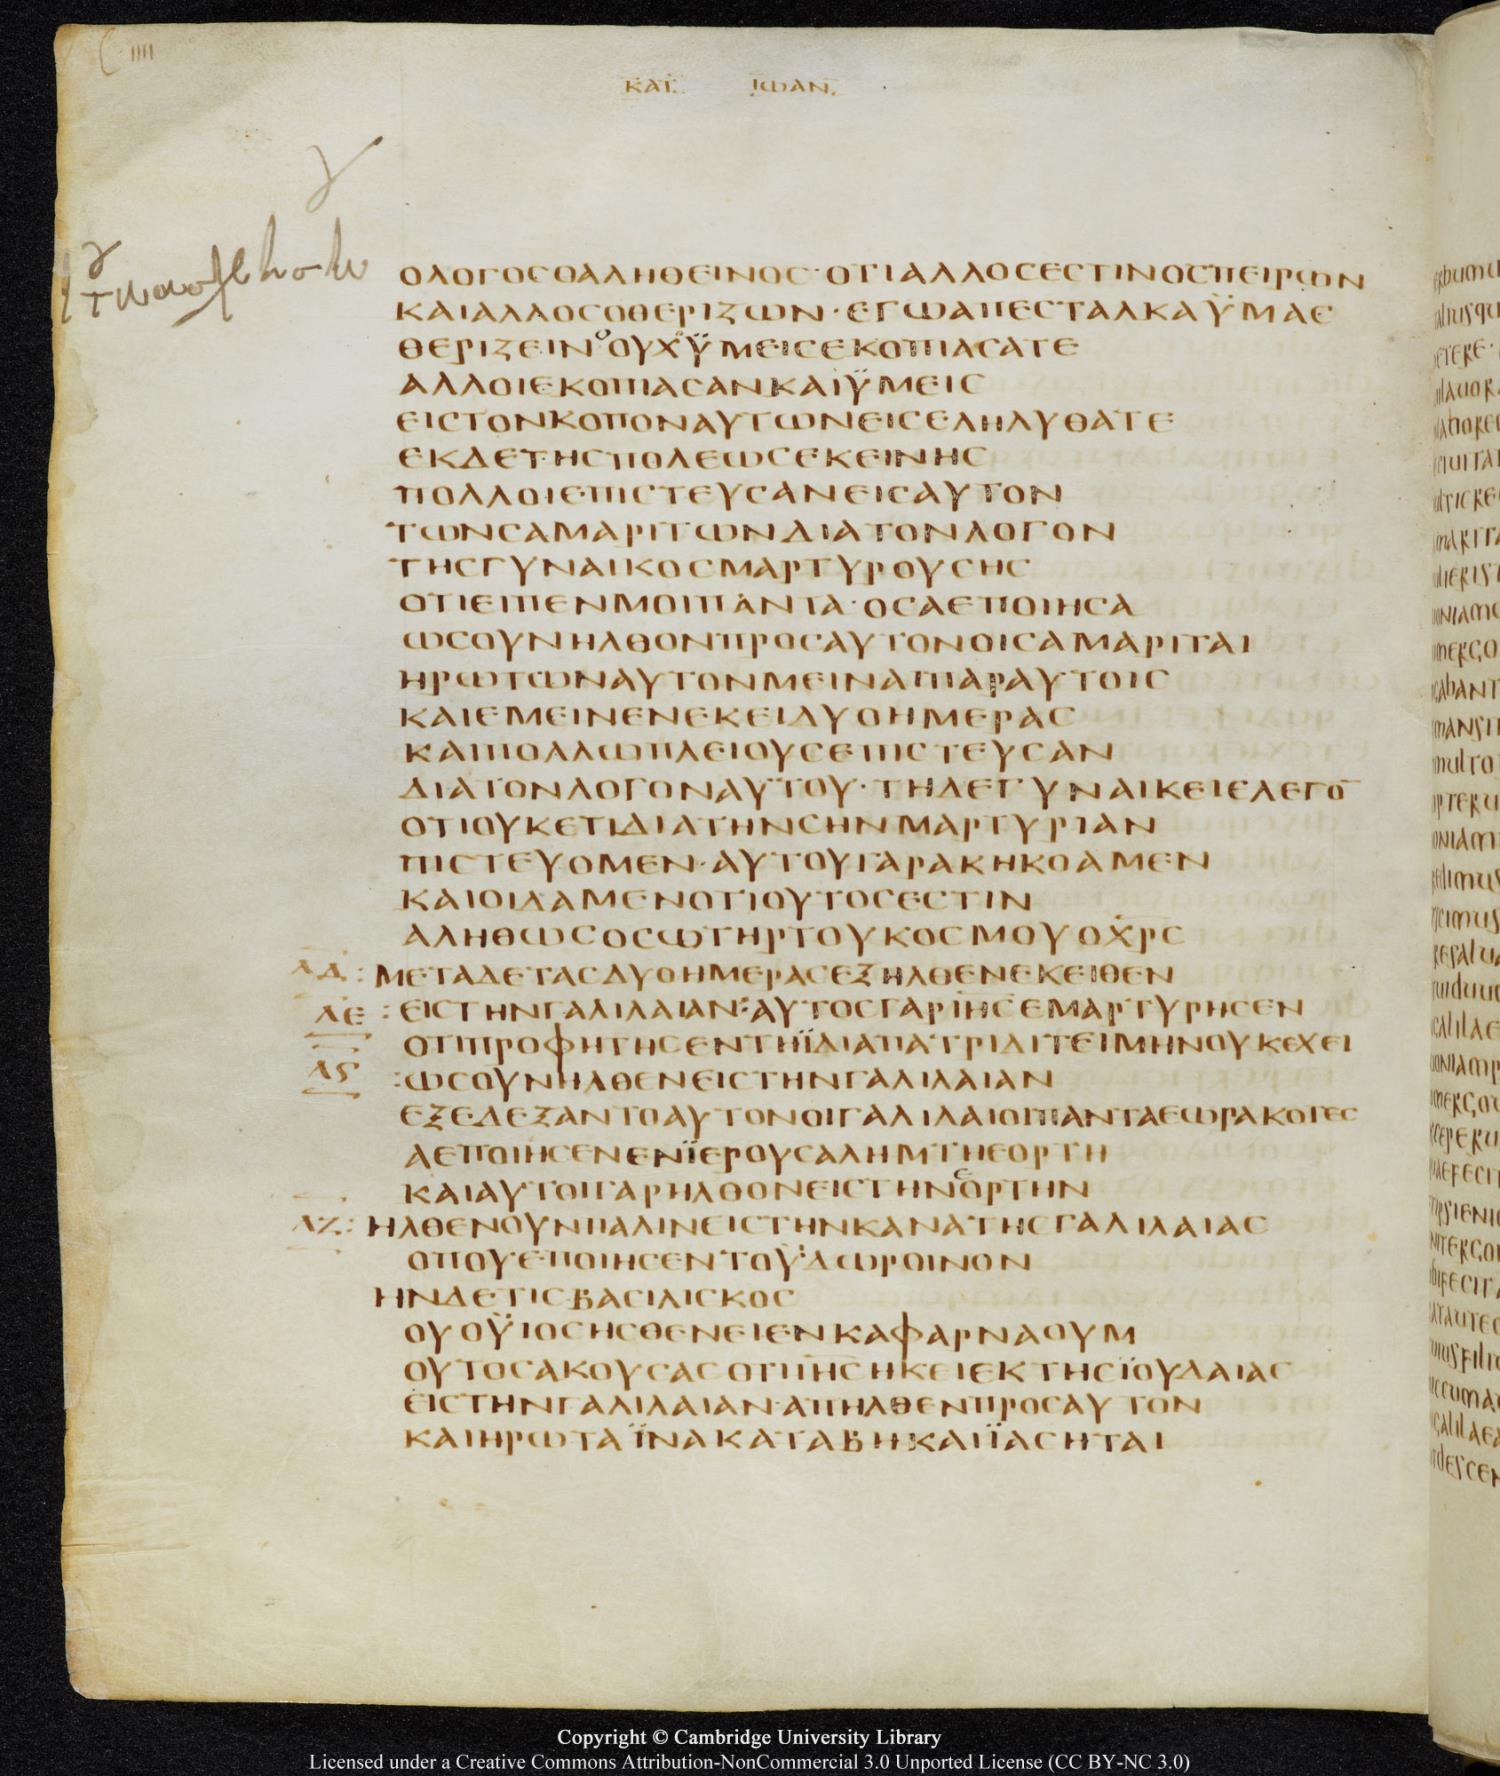 ΚΑΤ ΙΩΑΝ
ΟΛΟΓΟСΟΑΛΗΘΕΙΝΟС·ΟΤΙΑΛΛΟСΕСΤΙΝΟСΠΕΙΡΩΝ
ΚΑΙΑΛΛΟСΟΘΕΡΙΖΩΝ·ΕΓΩΑΠΕСΤΑΛΚΑΫΜΑС
ΘΕΡΙΖΕΙΝΟΟΥΧΫΜΕΙСΕΚΟΠΙΑСΑΤΕ
ΑΛΛΟΙΕΚΟΠΙΑСΑΝΚΑΙΫΜΕΙС
ΕΙСΤΟΝΚΟΠΟΝΑΥΤΩΝΕΙСΕΛΗΛΥΘΑΤΕ
ΕΚΔΕΤΗСΠΟΛΕΩСΕΚΕΙΝΗС
ΠΟΛΛΟΙΕΠΙСΤΕΥСΑΝΕΙСΑΥΤΟΝ
ΤΩΝСΑΜΑΡΙΤΩΝΔΙΑΤΟΝΛΟΓΟΝ
ΤΗСΓΥΝΑΙΚΟСΜΑΡΤΥΡΟΥСΗС
ΟΤΙΕΙΠΕΝΜΟΙΠΑΝΤΑ·ΟСΑΕΠΟΙΗСΑ
ΩСΟΥΝΗΛΘΟΝΠΡΟСΑΥΤΟΝΟΙСΑΜΑΡΙΤΑΙ
ΗΡΩΤΩΝΑΥΤΟΝΜΕΙΝΑΙΠΑΡΑΥΤΟΙС
ΚΑΙΕΜΕΙΝΕΝΕΚΕΙΔΥΟΗΜΕΡΑС
ΚΑΙΠΟΛΛΩΠΛΕΙΟΥСΕΠΙСΤΕΥСΑΝ
ΔΙΑΤΟΝΛΟΓΟΝΑΥΤΟΥ·ΤΗΔΕΓΥΝΑΙΚΕΙΕΛΕΓΟ̅
ΟΤΙΟΥΚΕΤΙΔΙΑΤΗΝСΗΝΜΑΡΤΥΡΙΑΝ
ΠΙСΤΕΥΟΜΕΝ·ΑΥΤΟΥΓΑΡΑΚΗΚΟΑΜΕΝ
ΚΑΙΟΙΔΑΜΕΝΟΤΙΟΥΤΟСΕСΤΙΝ
ΑΛΗΘΩСΟСΩΤΗΡΤΟΥΚΟСΜΟΥΟΧ̅Ρ̅С̅
ΛΔ: ΜΕΤΑΔΕΤΑСΔΥΟΗΜΕΡΑСΕΞΗΛΘΕΝΕΚΕΙΘΕΝ
ΛΕ :ΕΙСΤΗΝΓΑΛΙΛΑΙΑΝ:ΑΥΤΟСΓΑΡΙ̅Η̅С̅ΕΜΑΡΤΥΡΗСΕΝ
ΟΤΙΠΡΟΦΗΤΗСΕΝΤΗΪΔΙΑΠΑΤΡΙΔΙΤΕΙΜΗΝΟΥΚΕΧΕΙ
Λϛ :ΩСΟΥΝΗΛΘΕΝΕΙСΤΗΝΓΑΛΙΛΑΙΑΝ
ΕΞΕΔΕΞΑΝΤΟΑΥΤΟΝΟΙΓΑΛΙΛΑΙΟΙΠΑΝΤΑΕΩΡΑΚΟΤΕС
ΑΕΠΟΙΗСΕΝΕΝΪΕΡΟΥСΑΛΗΜΤΗΕΟΡΤΗ
ΚΑΙΑΥΤΟΙΓΑΡΗΛΘΟΝΕΙСΤΗΝΕΟΡΤΗΝ
ΛΖ: ΗΛΘΕΝΟΥΝΠΑΛΙΝΕΙСΤΗΝΚΑΝΑΤΗСΓΑΛΙΛΑΙΑС
ΟΠΟΥΕΠΟΙΗСΕΝΤΟΫΔΩΡΟΙΝΟΝ
ΗΝΔΕΤΙСΒΑСΙΛΙСΚΟС
ΟΥΟΫΙΟСΗСΘΕΝΕΙΕΝΚΑΦΑΡΝΑΟΥΜ
ΟΥΤΟСΑΚΟΥСΑСΟΤΙΙ̅Η̅С̅ΗΚΕΙΕΚΤΗСΪΟΥΔΑΙΑС
ΕΙСΤΗΝΓΑΛΙΛΑΙΑΝ·ΑΠΗΛΘΕΝΠΡΟСΑΥΤΟΝ
ΚΑΙΗΡΩΤΑΪΝΑΚΑΤΑΒΗΚΑΙΪΑСΗΤΑΙ
Copyright © Cambridge University Library
Licensed under a Creative Commons Attribution-NonCommercial 3.0 Unported License (CC BY-NC 3.0)